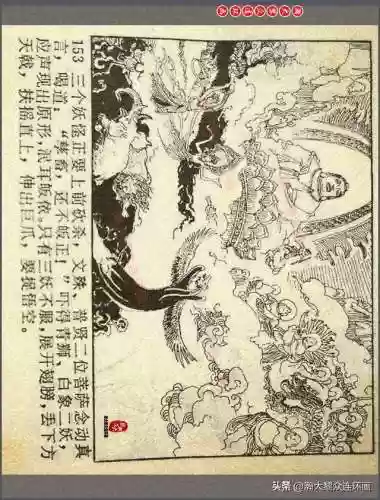 153 三个妖怪正要上前砍杀，文殊、普贤二位菩萨念动真
言，喝道：“孽畜，还不皈正！”吓得青狮、白象二妖，
应声现出原形，泯耳皈依。只有三妖不服，展开翅膀，丢下方
天戟，扶摇直上，伸出巨爪，要捉悟空。
头条 @瀚大黎众连环画